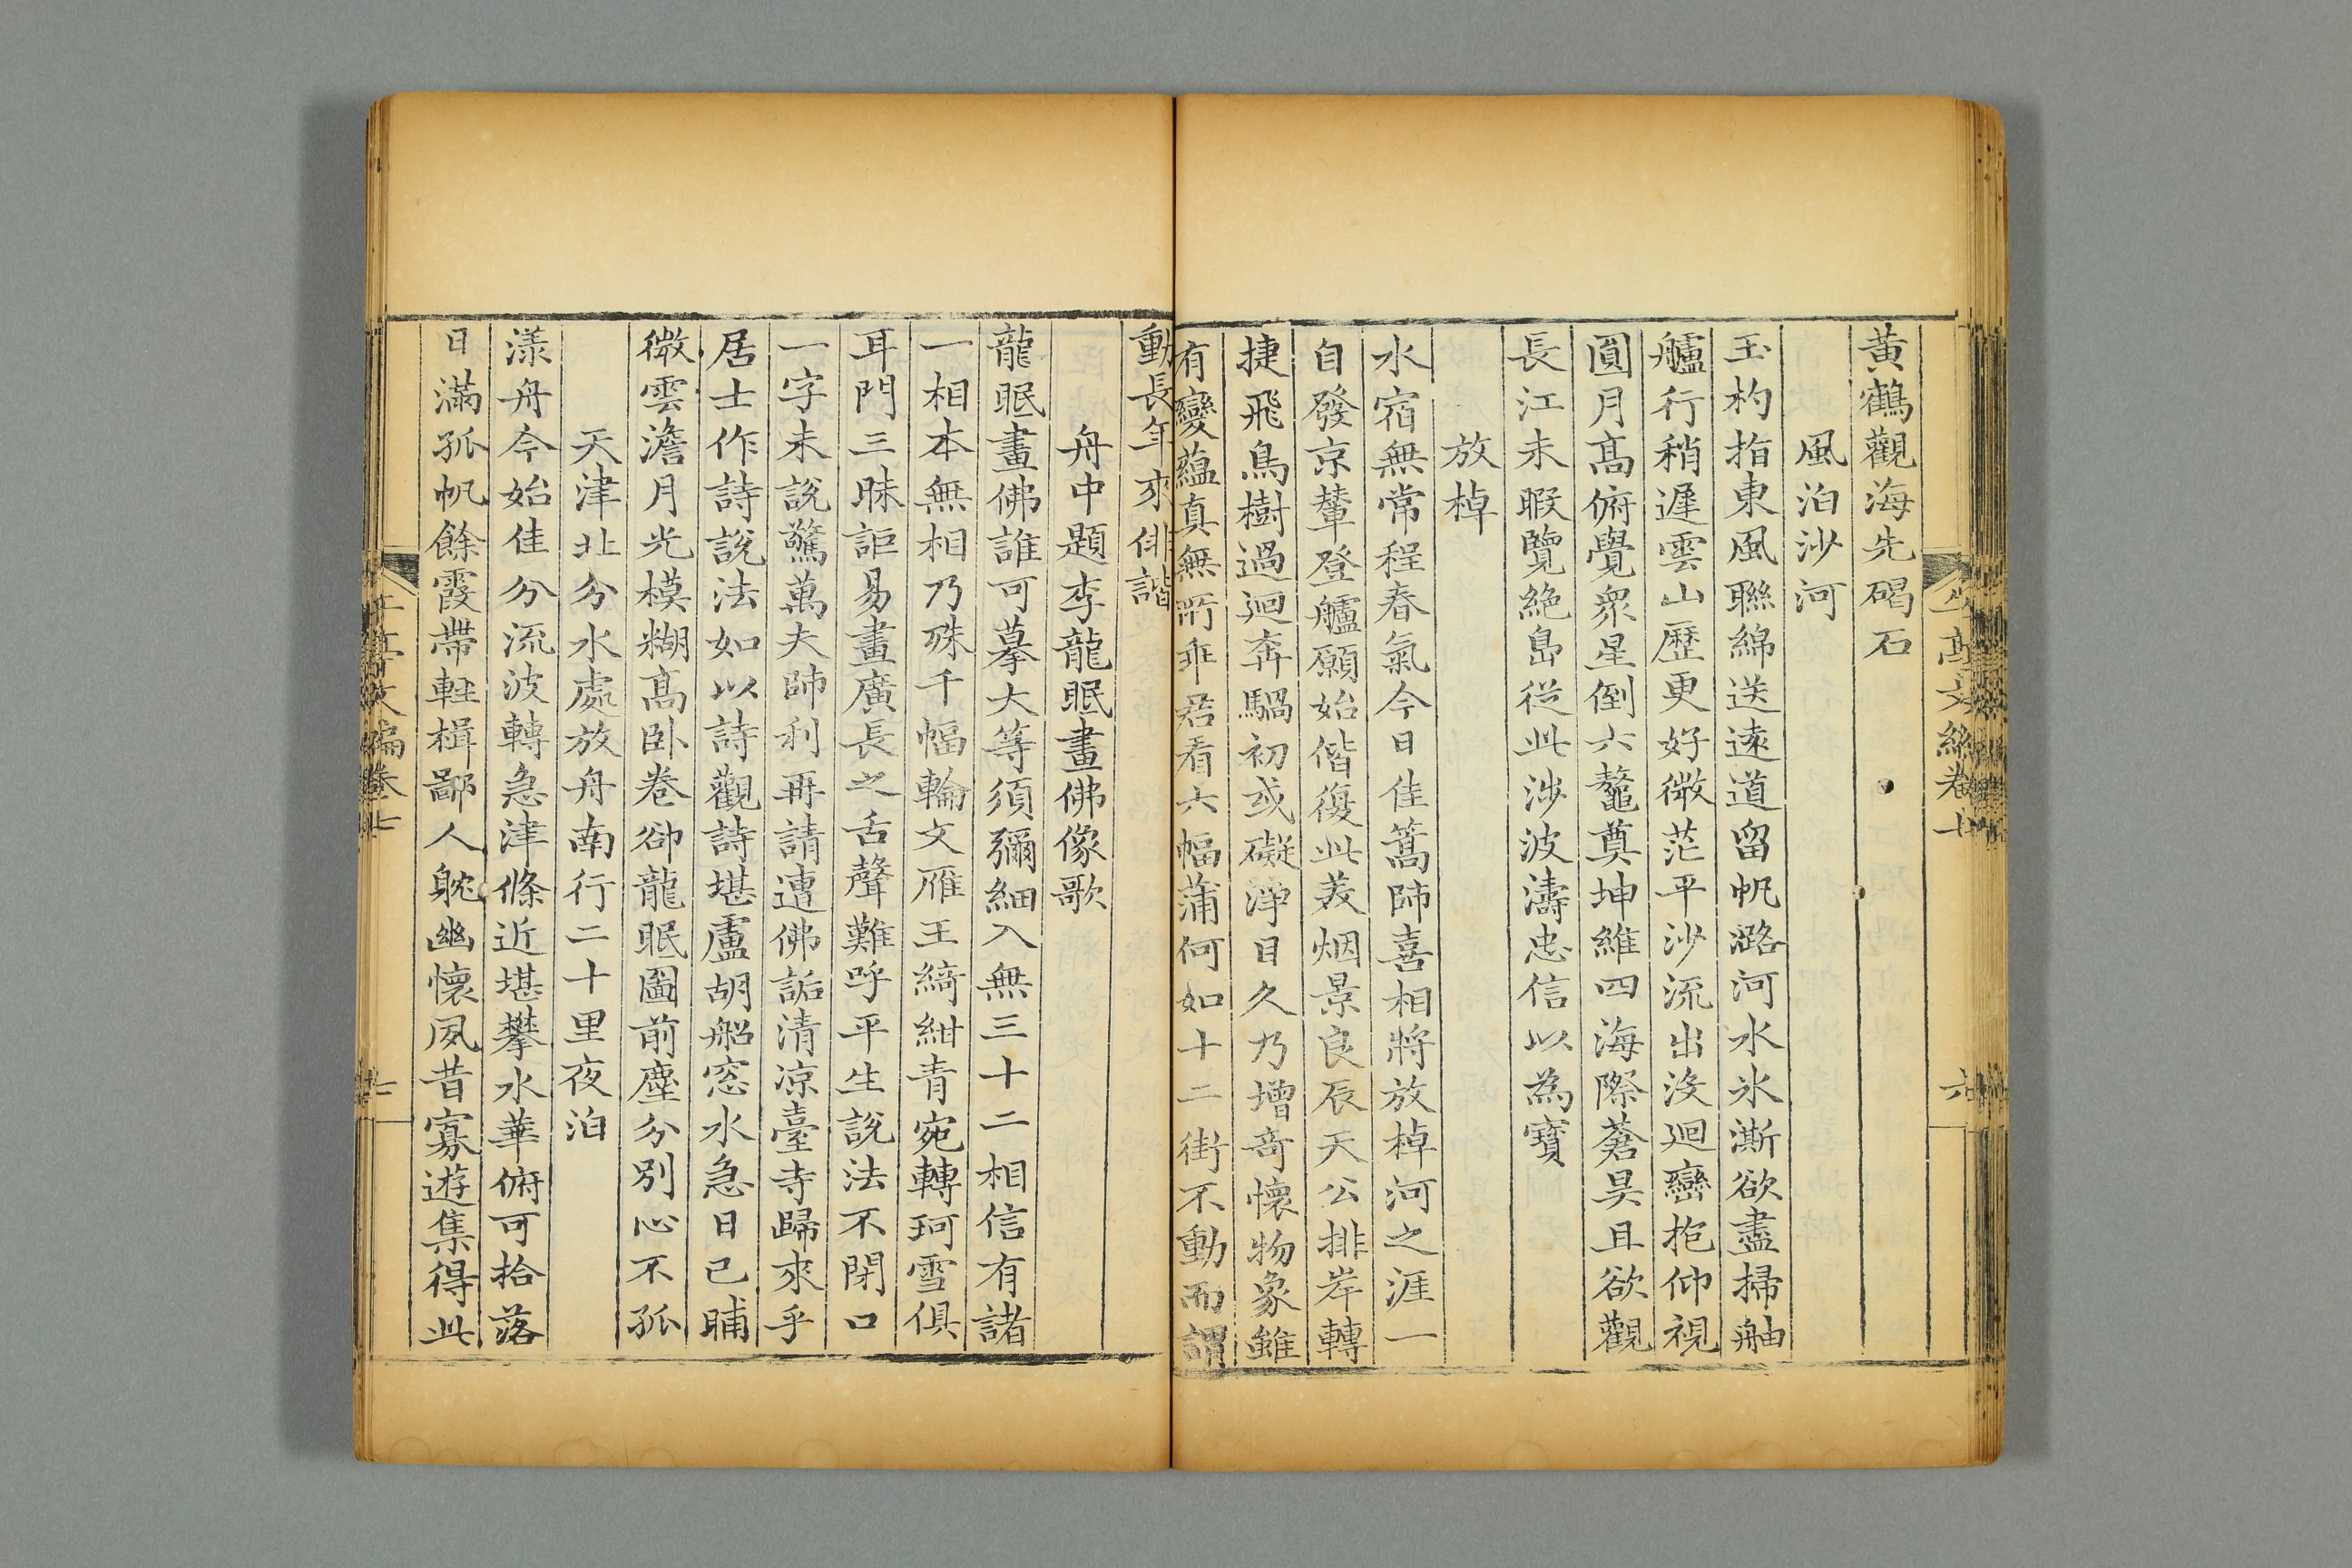 黃鶴觀海先碣石
風泊沙河
玉杓指東風聯綿送遠道留帆潞河水氷澌欲盡掃舳
艫行稍遲雲山歷更好微茫平沙流出沒迴巒抱仰視
圓月高俯覺衆星倒六鼇奠坤維四海際蒼昊且欲觀
長江未暇覽絶島從此涉波濤忠信以為寶
放棹
水宿無常程春氣今日佳篙師喜相將放棹河之涯一
自發京輦登艫願始偕復此美烟景良辰天公排岸轉
捷飛鳥樹過迴奔騧初或礙淨目久乃增奇懷物象雖
有變蘊真無所乖君看六幅蒲何如十二街不動而謂
動長年來俳諧
舟中題李龍眠畫佛像歌
龍眠畫佛誰可摹大等須彌細入無三十二相信有諸
一相本無相乃殊千幅輪文雁王綺紺青宛轉珂雪俱
耳門三昧詎易畫廣長之舌聲難呼平生說法不閉口
一字未說驚萬夫師利再請遭佛詬清凉臺寺歸來乎
居士作詩說法如以詩觀詩堪盧胡船窓水急日已晡
微雲澹月光模糊高卧卷卻龍眠圖前塵分別心不孤
天津北分水處放舟南行二十里夜泊
漾舟今始佳分流波轉急津條近堪攀水華俯可拾落
日滿孤帆餘霞帶輕楫鄙人躭幽懷夙昔寡遊集得此